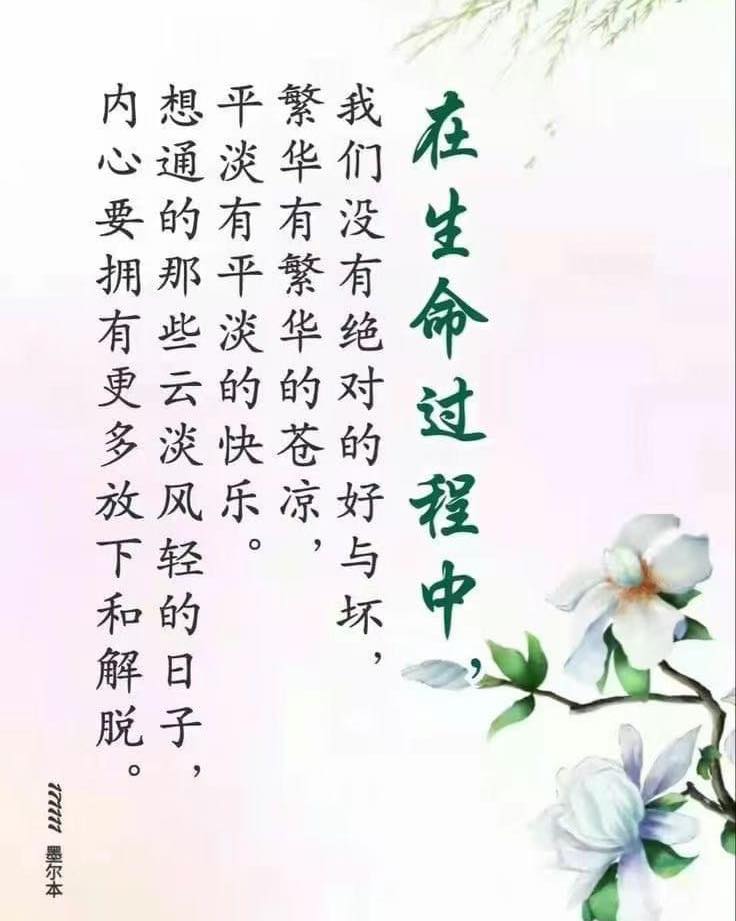 在生命过程中，
我们没有绝对的好与坏，
繁华有繁华的苍凉，
平淡有平淡的快乐。
想通的那些云淡风轻的日子，
内心要拥有更多放下和解脱。
171111 墨尔本